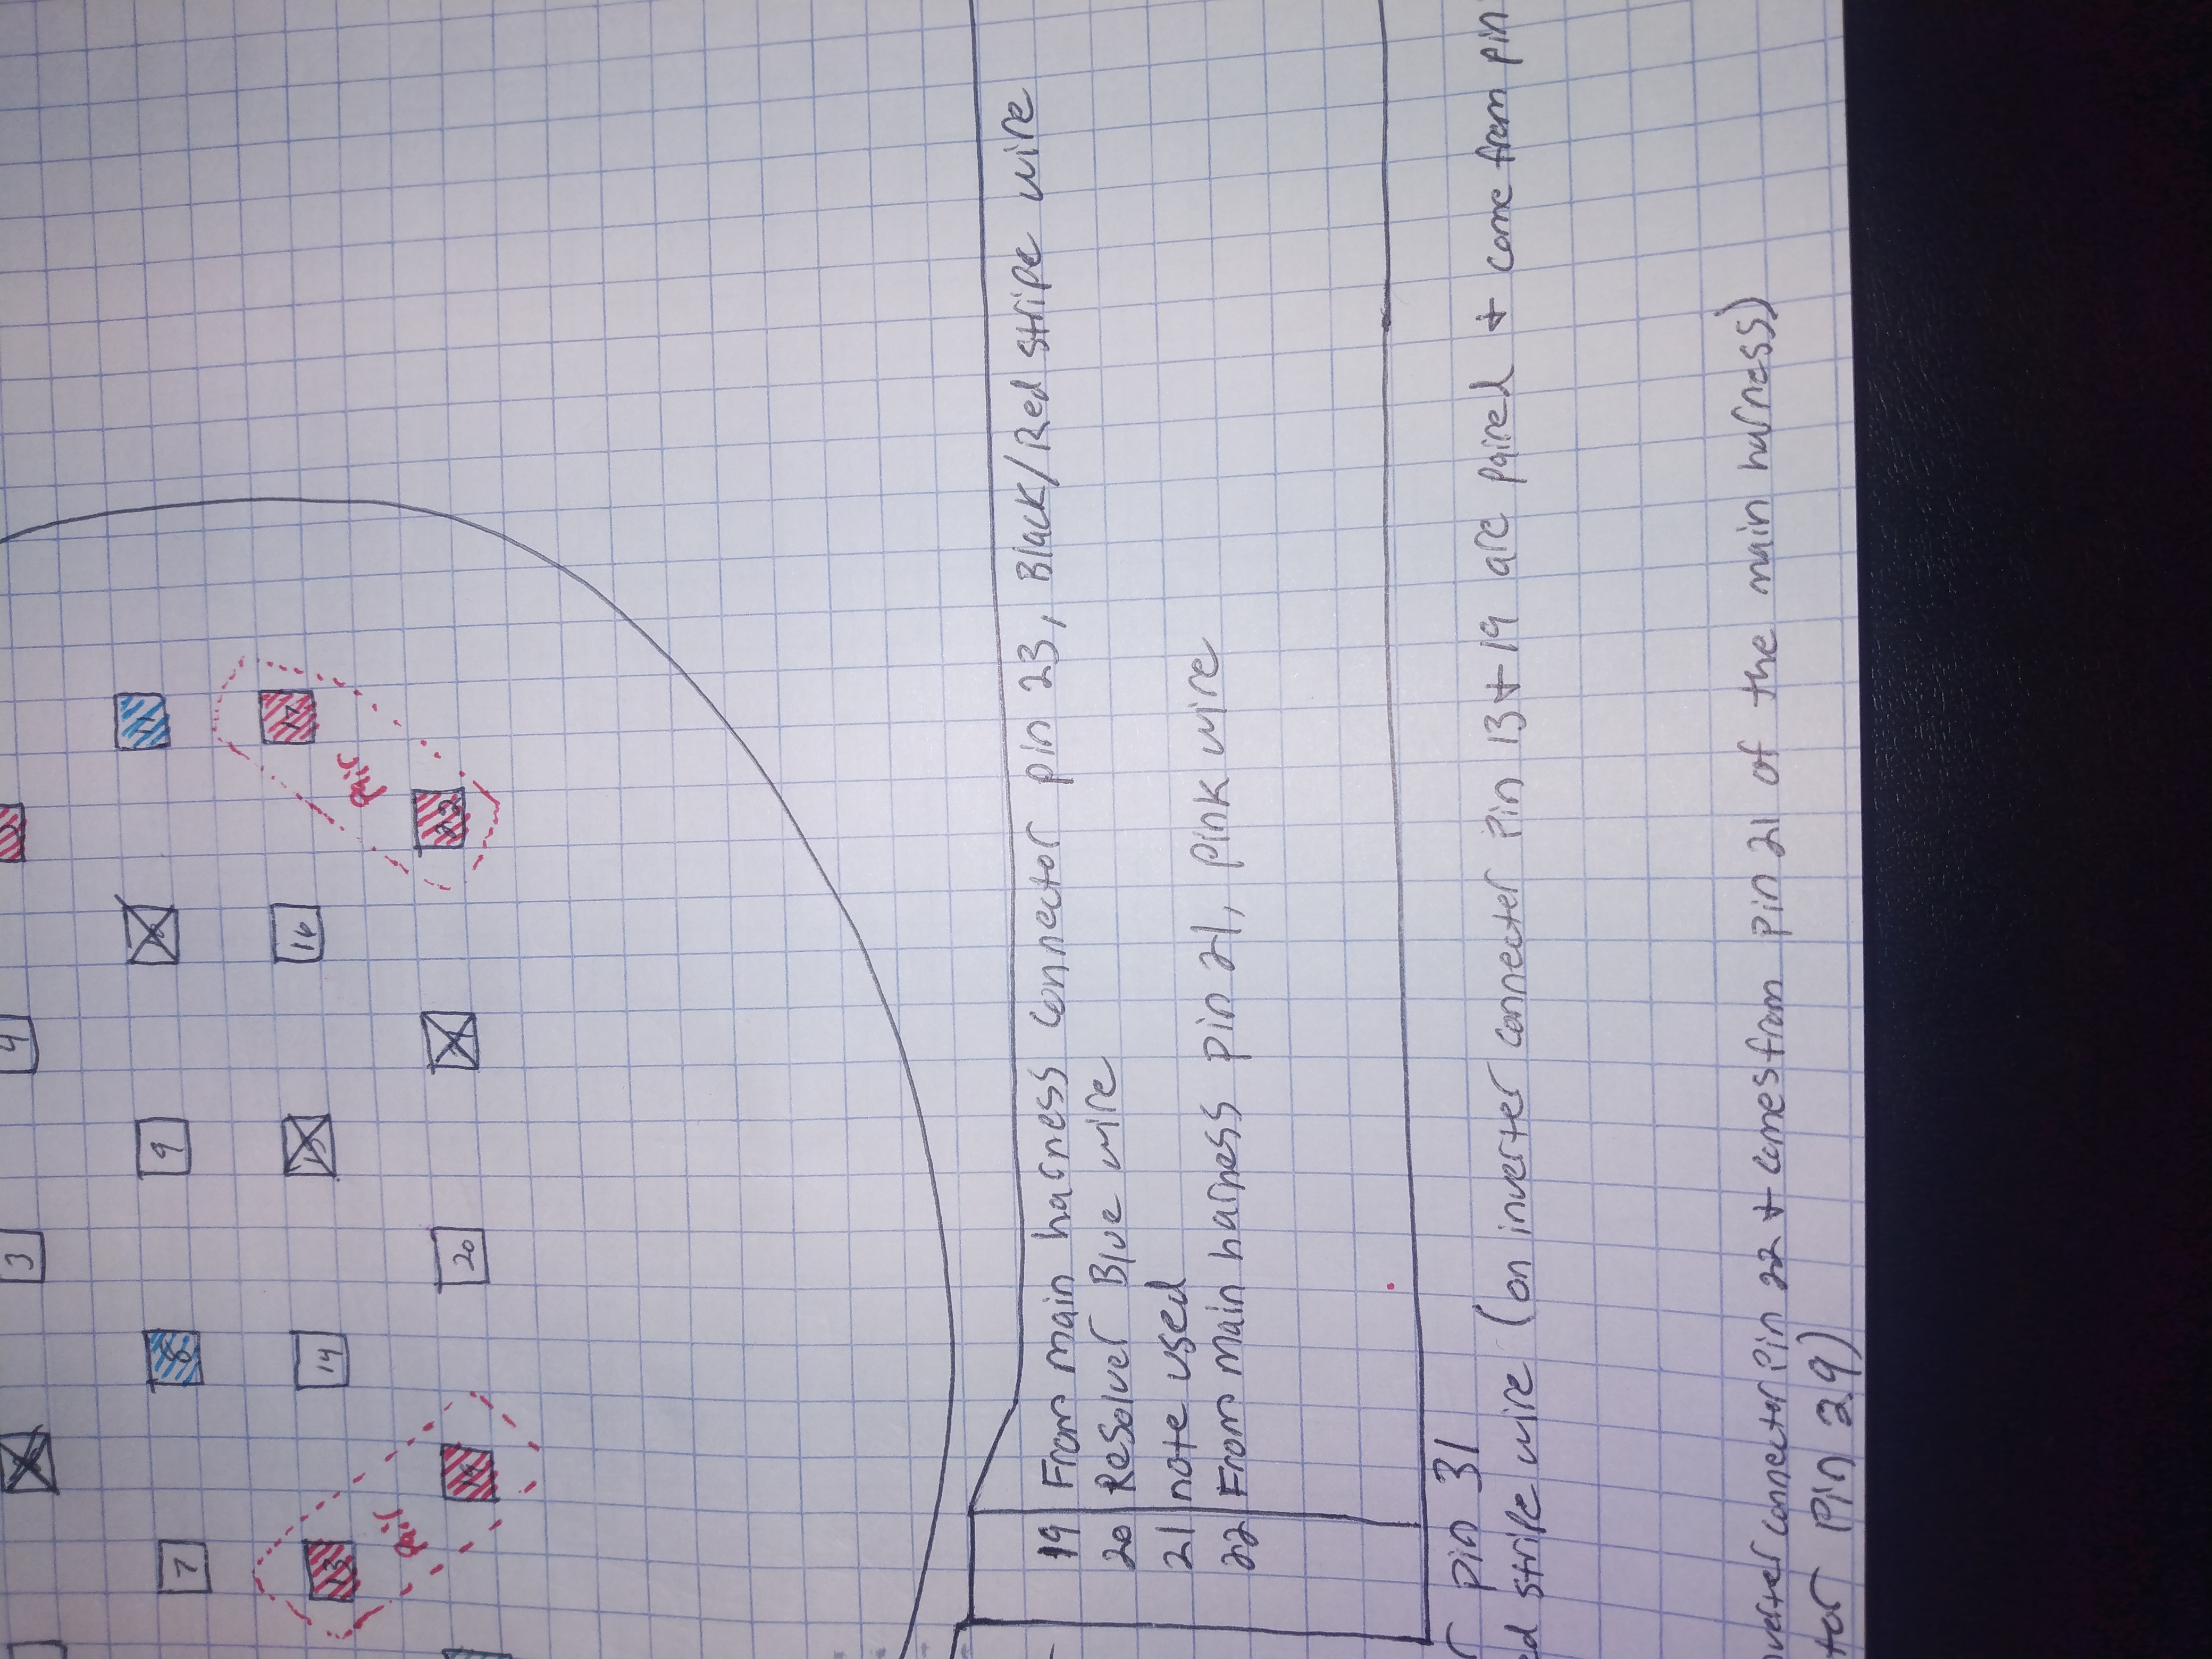 3
4
7
8
9
11
pair
13
14
15
16
17
pair
19
20
22
19 From main harness connector pin 23, Black/Red stripe wire
20 Resolver Blue wire
21 note used
22 From main harness pin 21, pink wire
pin 31
ed stripe wire (on inverter connector pin 13+19 are paired + come from pin
verter connector pin 22 + comes from pin 21 of the main harness)
tor Pin 29)